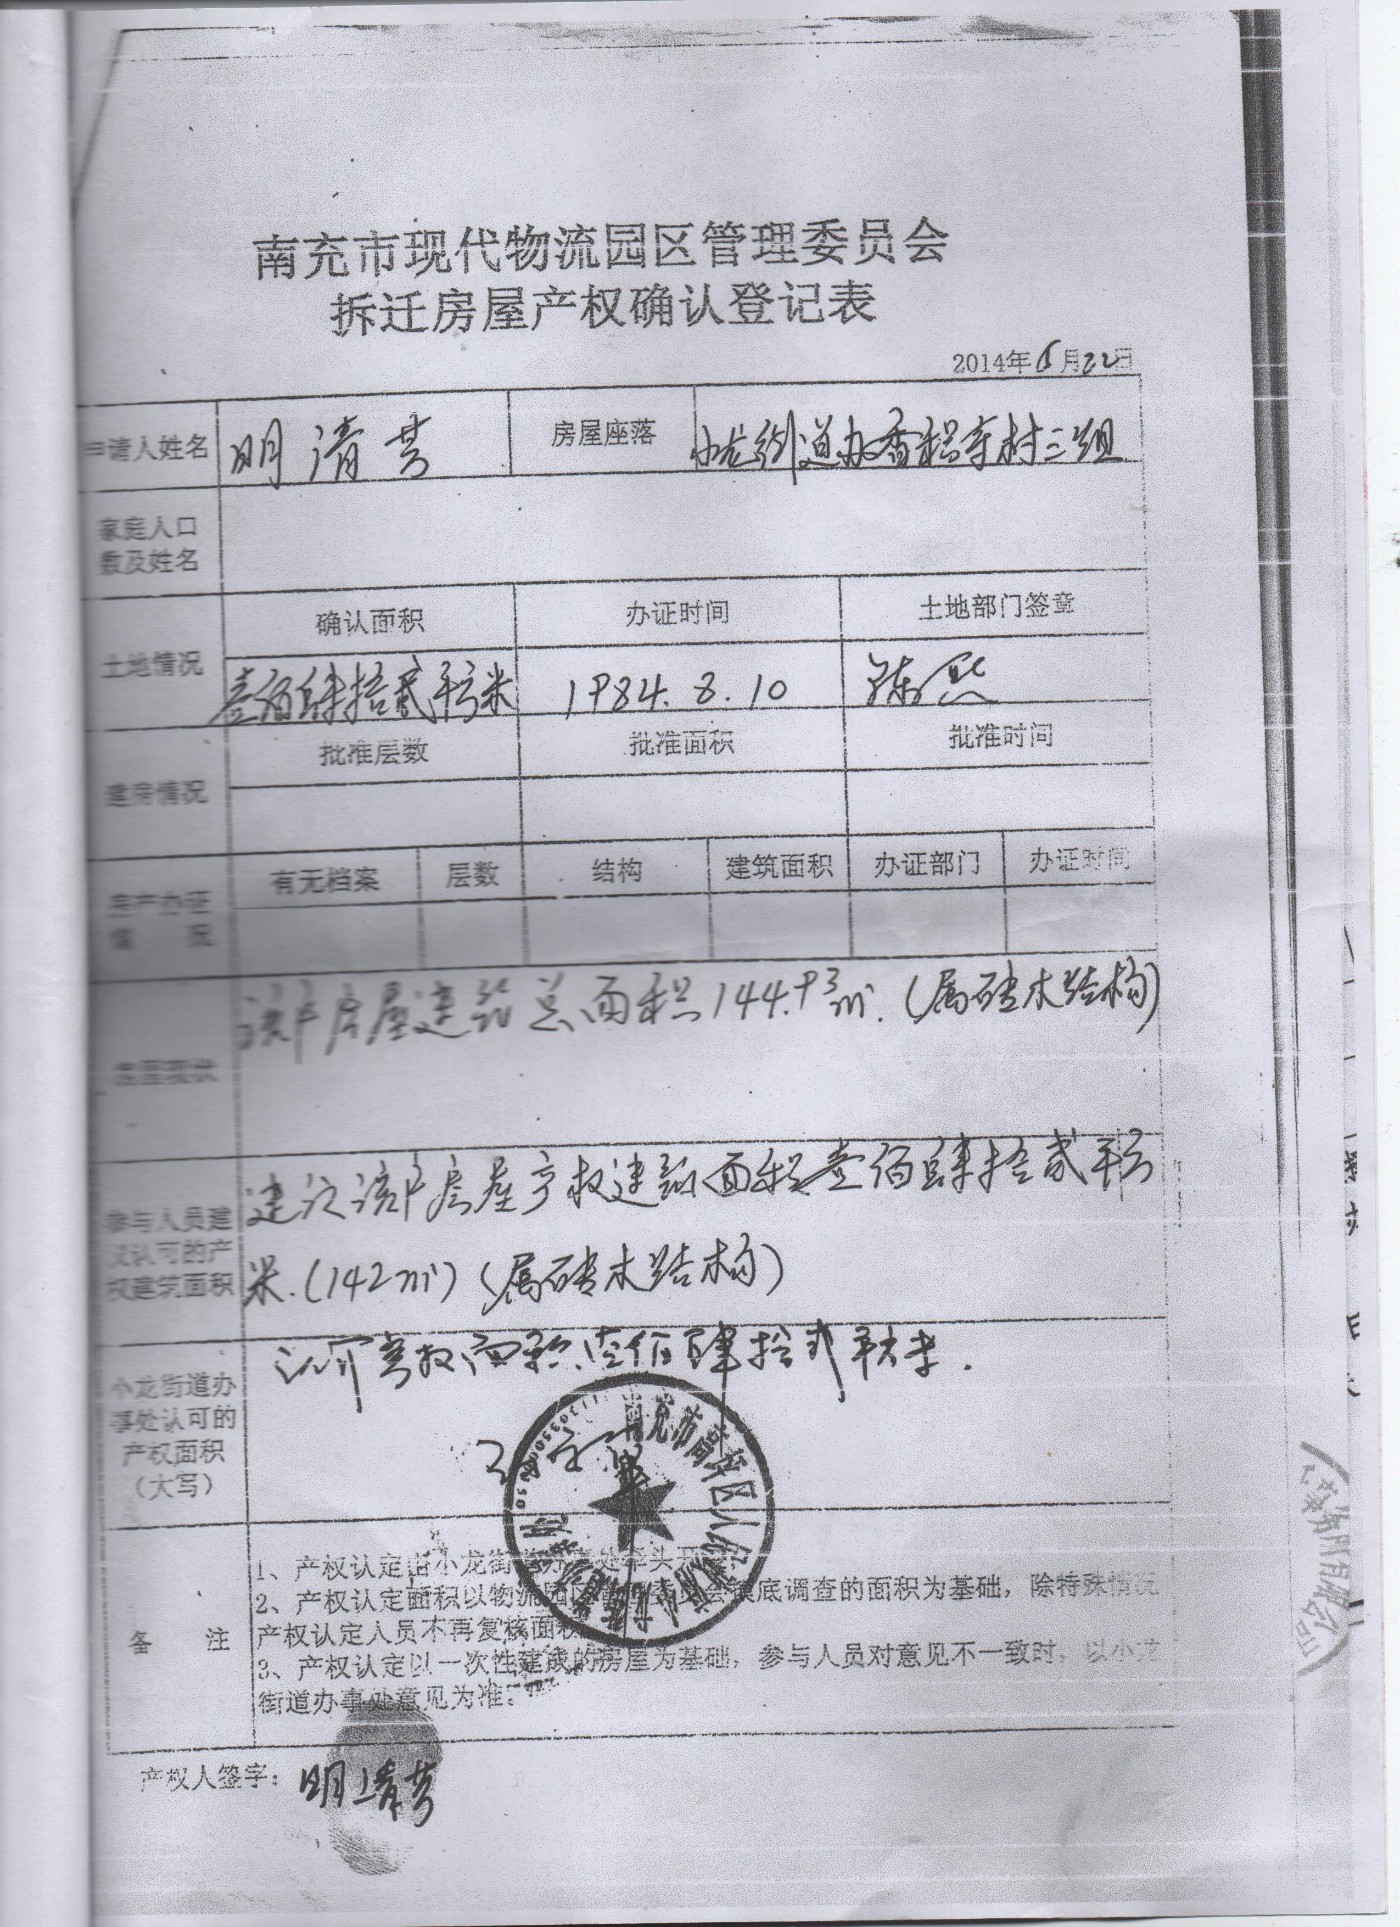 南充市现代物流园区管理委员会
拆迁房屋产权确认登记表
2014年6月22日
申请人姓名 明清芳 房屋座落 小龙街道办香稻寺村三组
家庭人口
数及姓名
土地情况 确认面积 办证时间 土地部门签章
壹佰肆拾贰平方米 1984.8.10 陈
建房情况 批准层数 批准面积 批准时间
房产办证
情 况
有无档案 层数 结构 建筑面积 办证部门 办证时间
房屋现状
该户房屋建筑总面积144.93㎡.(属砖木结构)
参与人员建
议认可的产
权建筑面积
建议该户房屋产权建筑面积壹佰肆拾贰平方
米.(142㎡)(属砖木结构)
小龙街道办
事处认可的
产权面积
(大写)
认可产权面积壹佰肆拾贰平方米.
南充市高坪区人民政府
备 注
1、产权认定由小龙街道办事处牵头
2、产权认定面积以物流园区管理委员会摸底调查的面积为基础,除特殊情况
产权认定人员不再复核面积
3、产权认定以一次性建成的房屋为基础,参与人员对意见不一致时,以小龙
街道办事处意见为准。
产权人签字:明清芳